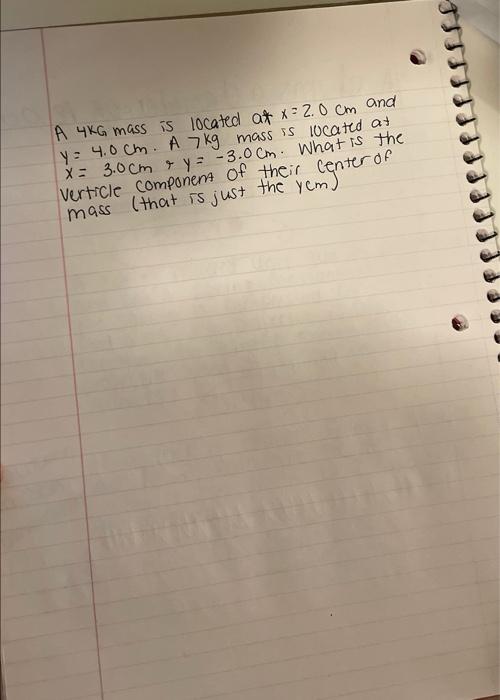 A 4KG mass is located at x = 2.0 cm and
y = 4.0 cm. A 7kg mass is located at
x = 3.0cm & y = -3.0cm. What is the
verticle component of their center of
mass (that is just the ycm)